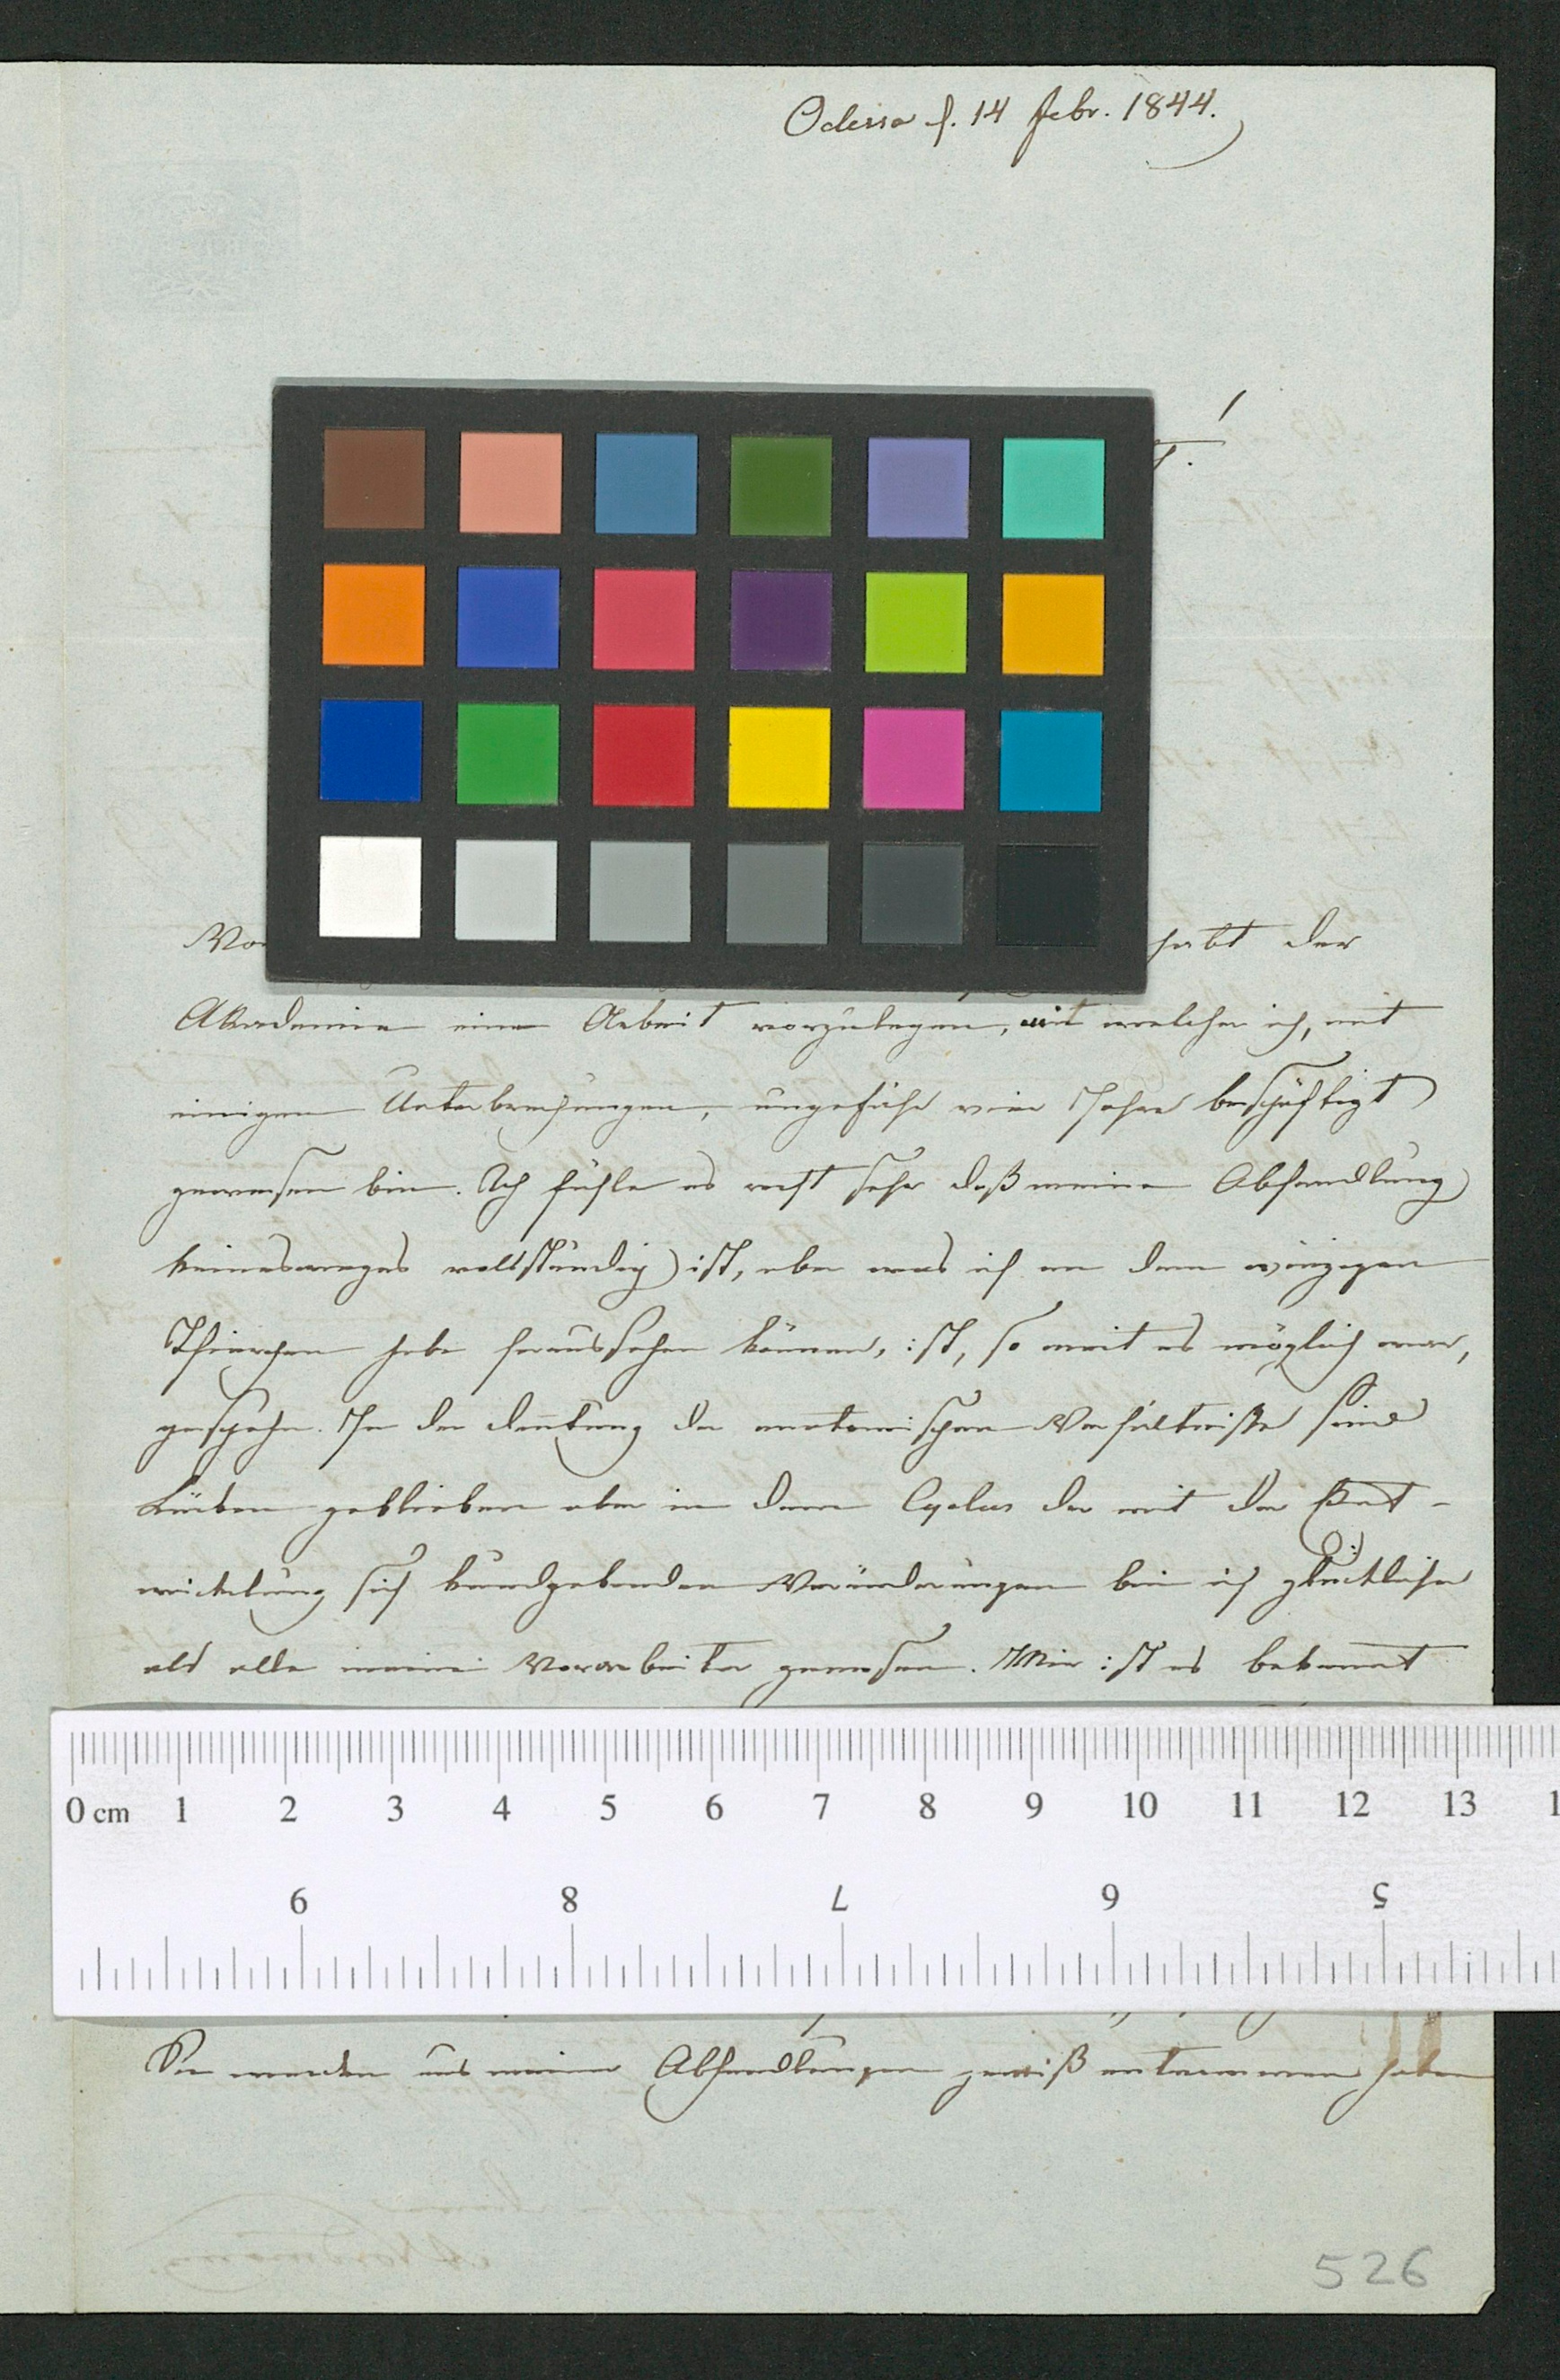 Odessa d. 14 Febr. 1844.
habt der
Akademie eine Arbeit vorzulegen, mit welcher ich, mit
einigen Unterbrechungen, ungefähr vier Jahre beschäftigt
gewesen bin. Ich fühle es recht sehr daß meine Abhandlung
keinesweges vollständig ist, aber was ich an dem winzigen
Thierchen habe heraussehen können, ist, so weit es möglich war,
geschehn. In der Deutung der anatomischen Verhältniße sind
Lücken geblieben aber in dem Cyclus der mit der Ent-
wickelung sich kundgebenden Veränderungen bin ich glücklicher
als alle meine Vorarbeiter gewesen. Mir ist es bekannt
0 cm 1 2 3 4 5 6 7 8 9 10 11 12 13
9 8 7 6 5
Sie werden aus meiner Abhandlungen gewiß entnommen haben
526